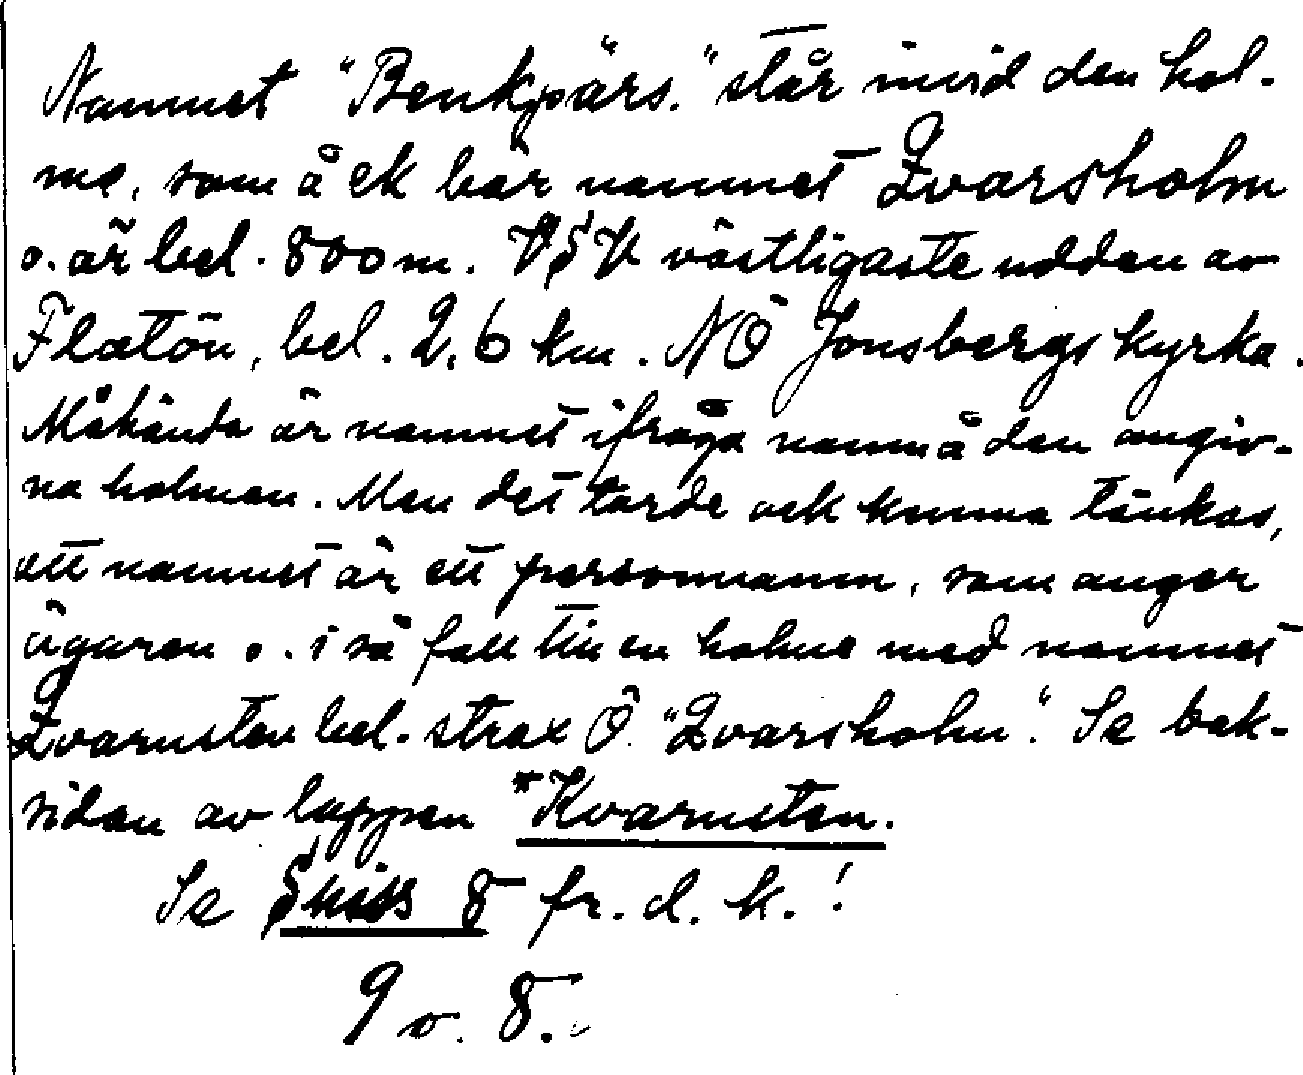 Namnet "Benkpärs." står invid den hol-
me, som å ek bär namnet Ivarsholm
o. är bel. 800 m. VSV västligaste udden av
Flatön, bel. 2,6 km. NÖ Jonsbergs kyrka.
Måhända är namnet ifråga namn å den angiv-
na holmen. Men det torde ock kunna tänkas,
att namnet är ett personnamn, som anger
ägaren o. i så fall till en holme med namnet
Kvarnsten bel. strax Ö. "Ivarsholm". Se bak-
sidan av lappen *Kvarnsten.
Se Skiss 8 fr. d. k.!
9 o. 8.